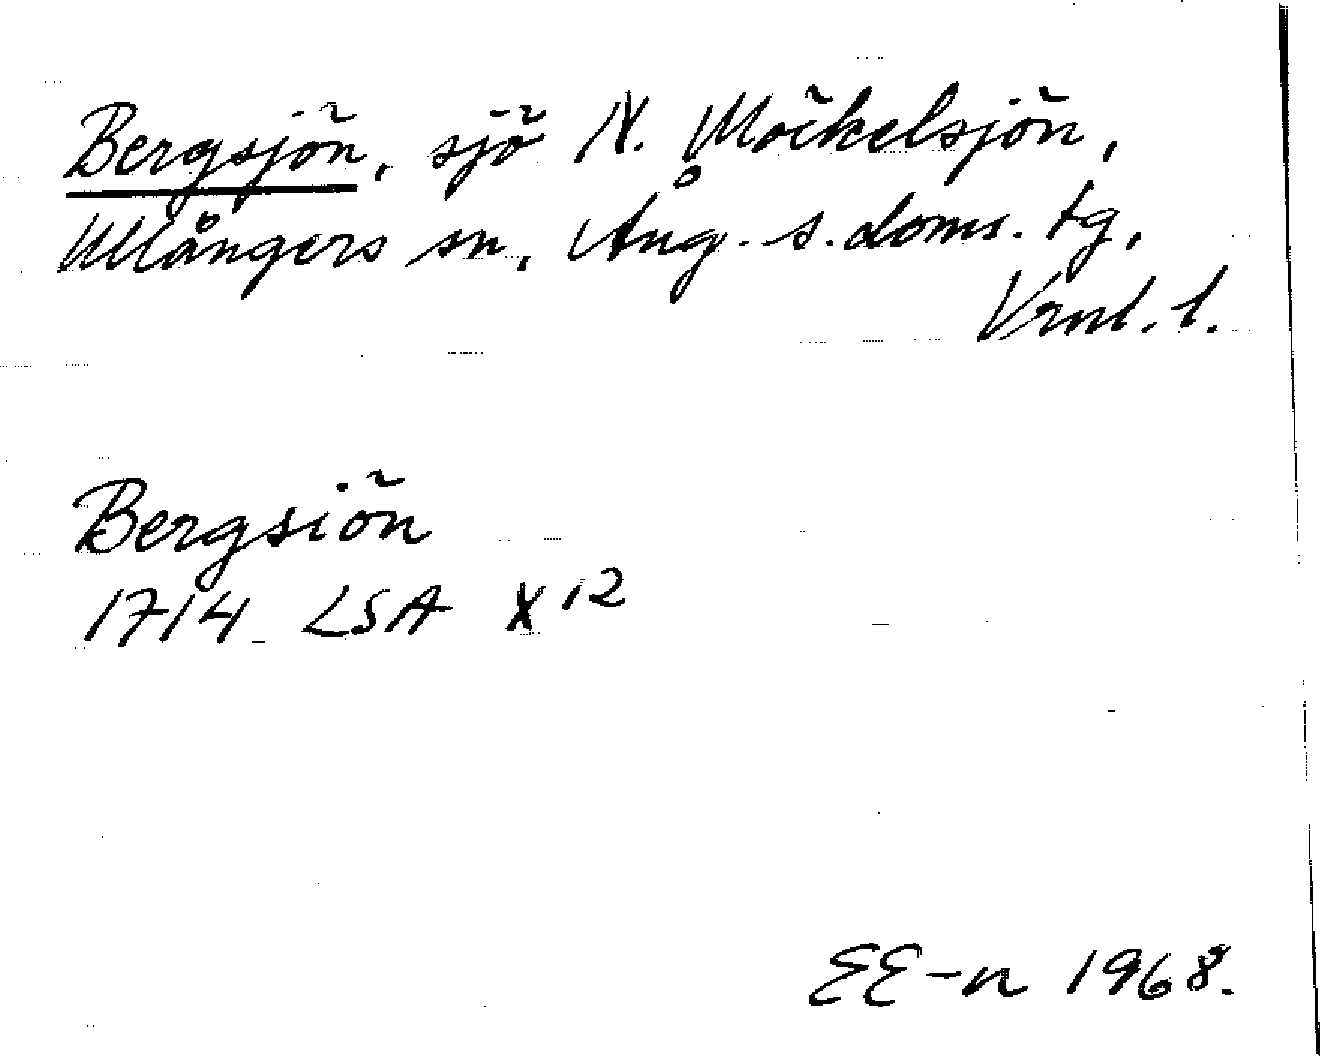 Bergsjön, sjö N. Möckelsjön,
Ullångers sn, Ång. s. doms. tg,
Vrnl. l.
Bergsiön
1714 LSA X 12
EE-n 1968.